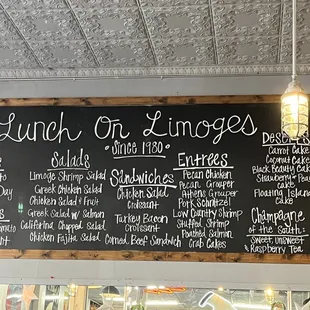 Lunch On Limoges
Since 1980
Salads
Limoge Shrimp Salad
Greek Chicken Salad
Chicken Salad & Fruit
Greek Salad w/ Salmon
California Chopped Salad
Chicken Fajita Salad
Sandwiches
Chicken Salad
Croissant
Turkey Bacon
Croissant
Corned Beef Sandwich
Entrees
Pecan Chicken
Pecan Grouper
Athens Grouper
Pork Schnitzel
Low Country Shrimp
Stuffed Shrimp
Poached Salmon
Crab Cakes
Desserts
Carrot Cake
Coconut Cake
Black Beauty Cake
Cake
Floating Island
Cake
Champagne
of the South:
Sweet, UnSweet
& Raspberry Tea